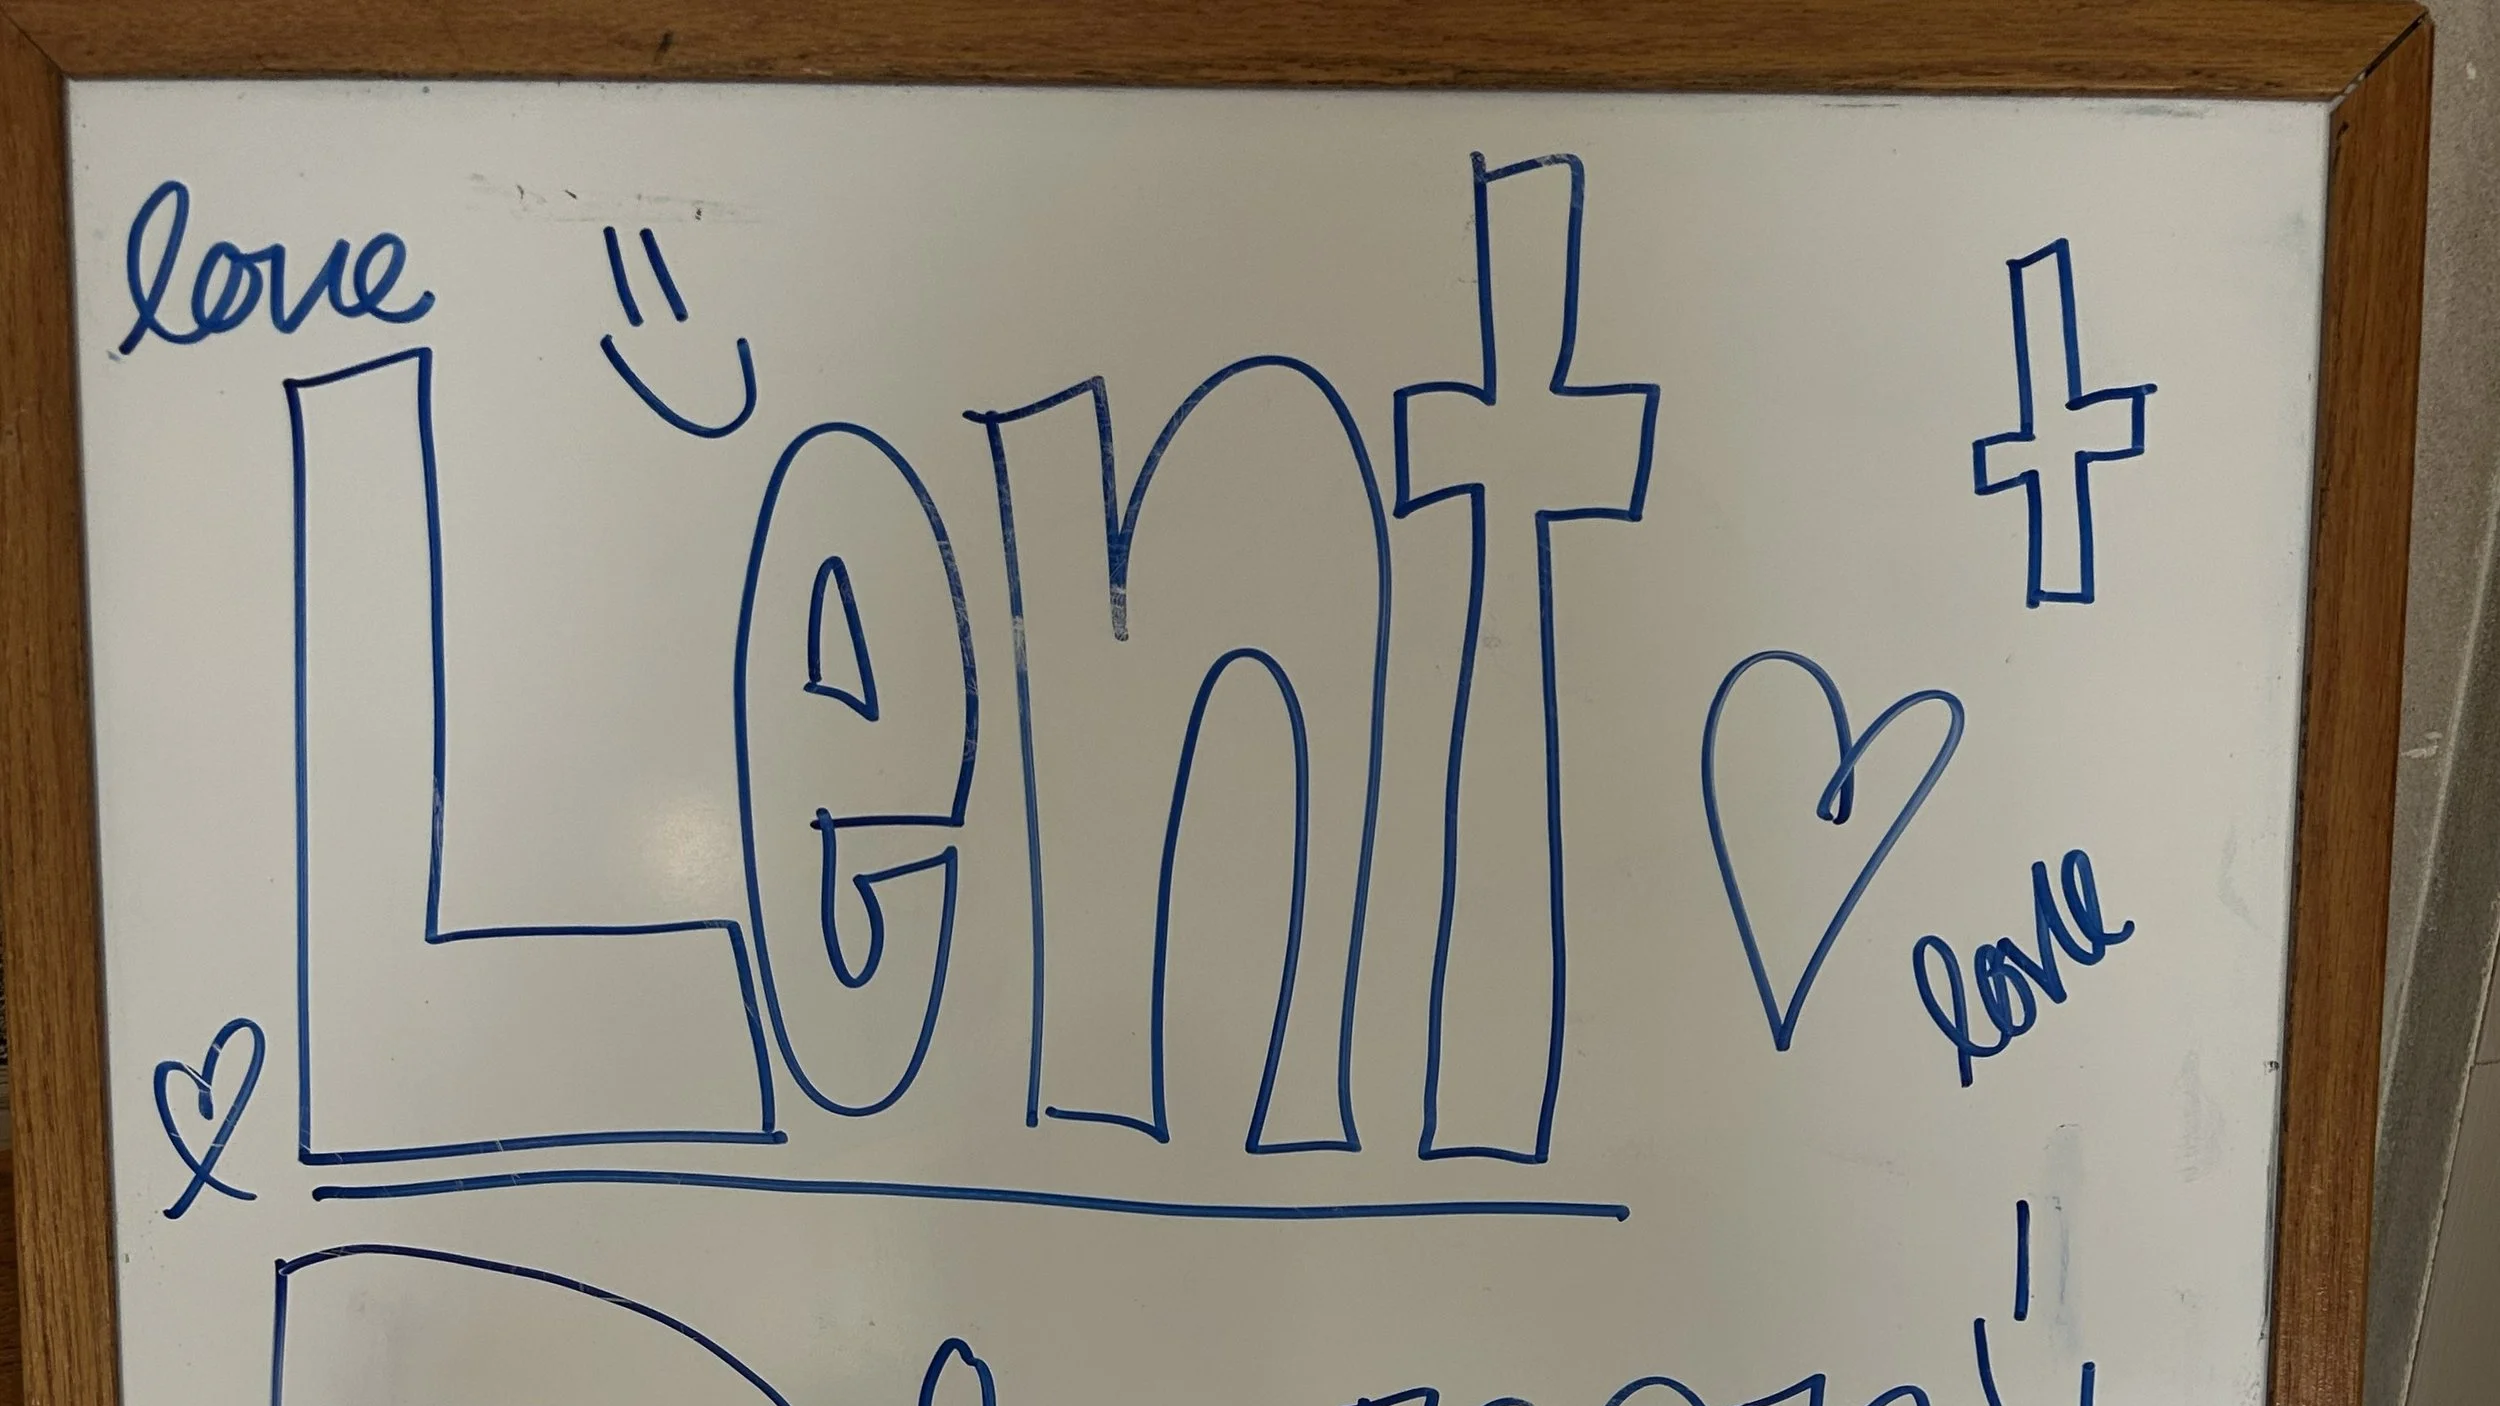 love
Lent
love